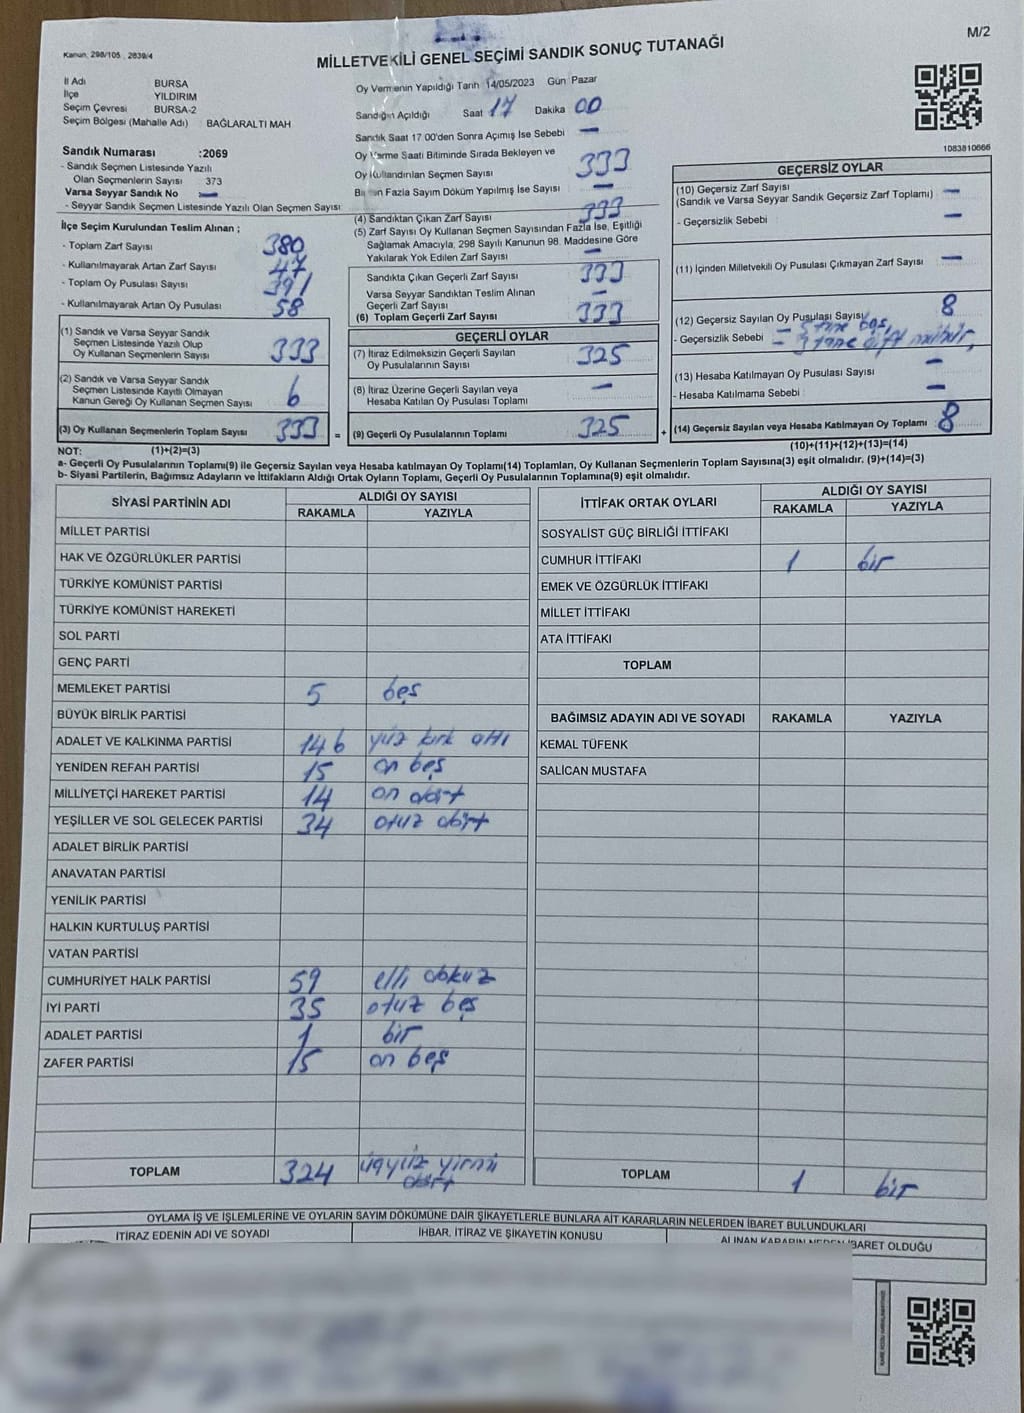 M/2
Kanun, 298/105 , 2839/4
MİLLETVEKİLİ GENEL SEÇİMİ SANDIK SONUÇ TUTANAĞI
İl Adı BURSA
İlçe YILDIRIM
Seçim Çevresi BURSA-2
Seçim Bölgesi (Mahalle Adı) BAĞLARALTI MAH
Sandık Numarası :2069
- Sandık Seçmen Listesinde Yazılı
Olan Seçmenlerin Sayısı 373
Varsa Seyyar Sandık No —
- Seyyar Sandık Seçmen Listesinde Yazılı Olan Seçmen Sayısı
Oy Vermenin Yapıldığı Tarih 14/05/2023 Gün Pazar
Sandığın Açıldığı Saat 17 Dakika 00
Sandık Saat 17 00'den Sonra Açımış İse Sebebi —
Oy Verme Saati Bitiminde Sırada Bekleyen ve
Oy Kullandırılan Seçmen Sayısı 333
Birden Fazla Sayım Döküm Yapılmış İse Sayısı —
1083810666
İlçe Seçim Kurulundan Teslim Alınan ;
- Toplam Zarf Sayısı 380
- Kullanılmayarak Artan Zarf Sayısı 47
- Toplam Oy Pusulası Sayısı 391
- Kullanılmayarak Artan Oy Pusulası 58
(1) Sandık ve Varsa Seyyar Sandık
Seçmen Listesinde Yazılı Olup
Oy Kullanan Seçmenlerin Sayısı 333
(2) Sandık ve Varsa Seyyar Sandık
Seçmen Listesinde Kayıtlı Olmayan
Kanun Gereği Oy Kullanan Seçmen Sayısı 6
(3) Oy Kullanan Seçmenlerin Toplam Sayısı 333 =
(4) Sandıktan Çıkan Zarf Sayısı 333
(5) Zarf Sayısı Oy Kullanan Seçmen Sayısından Fazla İse, Eşitliği
Sağlamak Amacıyla, 298 Sayılı Kanunun 98. Maddesine Göre
Yakılarak Yok Edilen Zarf Sayısı —
Sandıkta Çıkan Geçerli Zarf Sayısı 333
Varsa Seyyar Sandıktan Teslim Alınan
Geçerli Zarf Sayısı —
(6) Toplam Geçerli Zarf Sayısı 333
GEÇERLİ OYLAR
(7) İtiraz Edilmeksizin Geçerli Sayılan
Oy Pusulalarının Sayısı 325
(8) İtiraz Üzerine Geçerli Sayılan veya
Hesaba Katılan Oy Pusulası Toplamı —
(9) Geçerli Oy Pusulalarının Toplamı 325 +
GEÇERSİZ OYLAR
(10) Geçersiz Zarf Sayısı
(Sandık ve Varsa Seyyar Sandık Geçersiz Zarf Toplamı) —
- Geçersizlik Sebebi —
(11) İçinden Milletvekili Oy Pusulası Çıkmayan Zarf Sayısı —
(12) Geçersiz Sayılan Oy Pusulası Sayısı 8
- Geçersizlik Sebebi — 5 tane boş,
— 3 tane çift mühür,
(13) Hesaba Katılmayan Oy Pusulası Sayısı —
- Hesaba Katılmama Sebebi —
(14) Geçersiz Sayılan veya Hesaba Katılmayan Oy Toplamı 8
NOT: (1)+(2)=(3) (10)+(11)+(12)+(13)=(14)
a- Geçerli Oy Pusulalarının Toplamı(9) ile Geçersiz Sayılan veya Hesaba katılmayan Oy Toplamı(14) Toplamları, Oy Kullanan Seçmenlerin Toplam Sayısına(3) eşit olmalıdır. (9)+(14)=(3)
b- Siyasi Partilerin, Bağımsız Adayların ve İttifakların Aldığı Ortak Oyların Toplamı, Geçerli Oy Pusulalarının Toplamına(9) eşit olmalıdır.
SİYASİ PARTİNİN ADI ALDIĞI OY SAYISI
RAKAMLA YAZIYLA
MİLLET PARTİSİ
HAK VE ÖZGÜRLÜKLER PARTİSİ
TÜRKİYE KOMÜNİST PARTİSİ
TÜRKİYE KOMÜNİST HAREKETİ
SOL PARTİ
GENÇ PARTİ
MEMLEKET PARTİSİ 5 beş
BÜYÜK BİRLİK PARTİSİ
ADALET VE KALKINMA PARTİSİ 146 yüz kırk altı
YENİDEN REFAH PARTİSİ 15 on beş
MİLLİYETÇİ HAREKET PARTİSİ 14 on dört
YEŞİLLER VE SOL GELECEK PARTİSİ 34 otuz dört
ADALET BİRLİK PARTİSİ
ANAVATAN PARTİSİ
YENİLİK PARTİSİ
HALKIN KURTULUŞ PARTİSİ
VATAN PARTİSİ
CUMHURİYET HALK PARTİSİ 59 elli dokuz
İYİ PARTİ 35 otuz beş
ADALET PARTİSİ 1 bir
ZAFER PARTİSİ 15 on beş
TOPLAM 324 üçyüz yirmi
dört
İTTİFAK ORTAK OYLARI ALDIĞI OY SAYISI
RAKAMLA YAZIYLA
SOSYALİST GÜÇ BİRLİĞİ İTTİFAKI
CUMHUR İTTİFAKI 1 bir
EMEK VE ÖZGÜRLÜK İTTİFAKI
MİLLET İTTİFAKI
ATA İTTİFAKI
TOPLAM
BAĞIMSIZ ADAYIN ADI VE SOYADI RAKAMLA YAZIYLA
KEMAL TÜFENK
SALİCAN MUSTAFA
TOPLAM 1 bir
OYLAMA İŞ VE İŞLEMLERİNE VE OYLARIN SAYIM DÖKÜMÜNE DAİR ŞİKAYETLERLE BUNLARA AİT KARARLARIN NELERDEN İBARET BULUNDUKLARI
İTİRAZ EDENİN ADI VE SOYADI İHBAR, İTİRAZ VE ŞİKAYETİN KONUSU ALINAN KARARIN NEDEN İBARET OLDUĞU